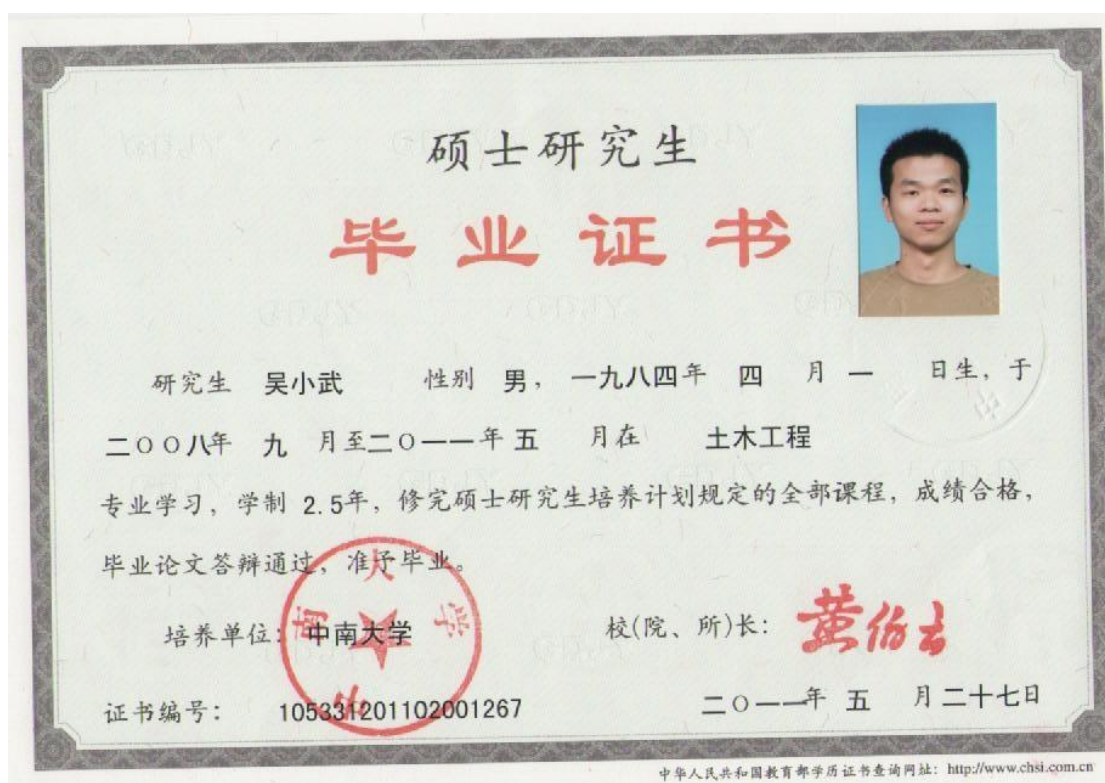 硕士研究生
毕业证书
研究生 吴小武 性别 男，一九八四年 四 月 一 日生，于
二〇〇八年 九 月至二〇一一年 五 月在 土木工程
专业学习，学制 2.5年，修完硕士研究生培养计划规定的全部课程，成绩合格，
毕业论文答辩通过，准予毕业。
培养单位：中南大学
校(院、所)长：
中南大学
证书编号： 105331201102001267
二〇一一年 五 月二十七日
中华人民共和国教育部学历证书查询网址：http://www.chsi.com.cn